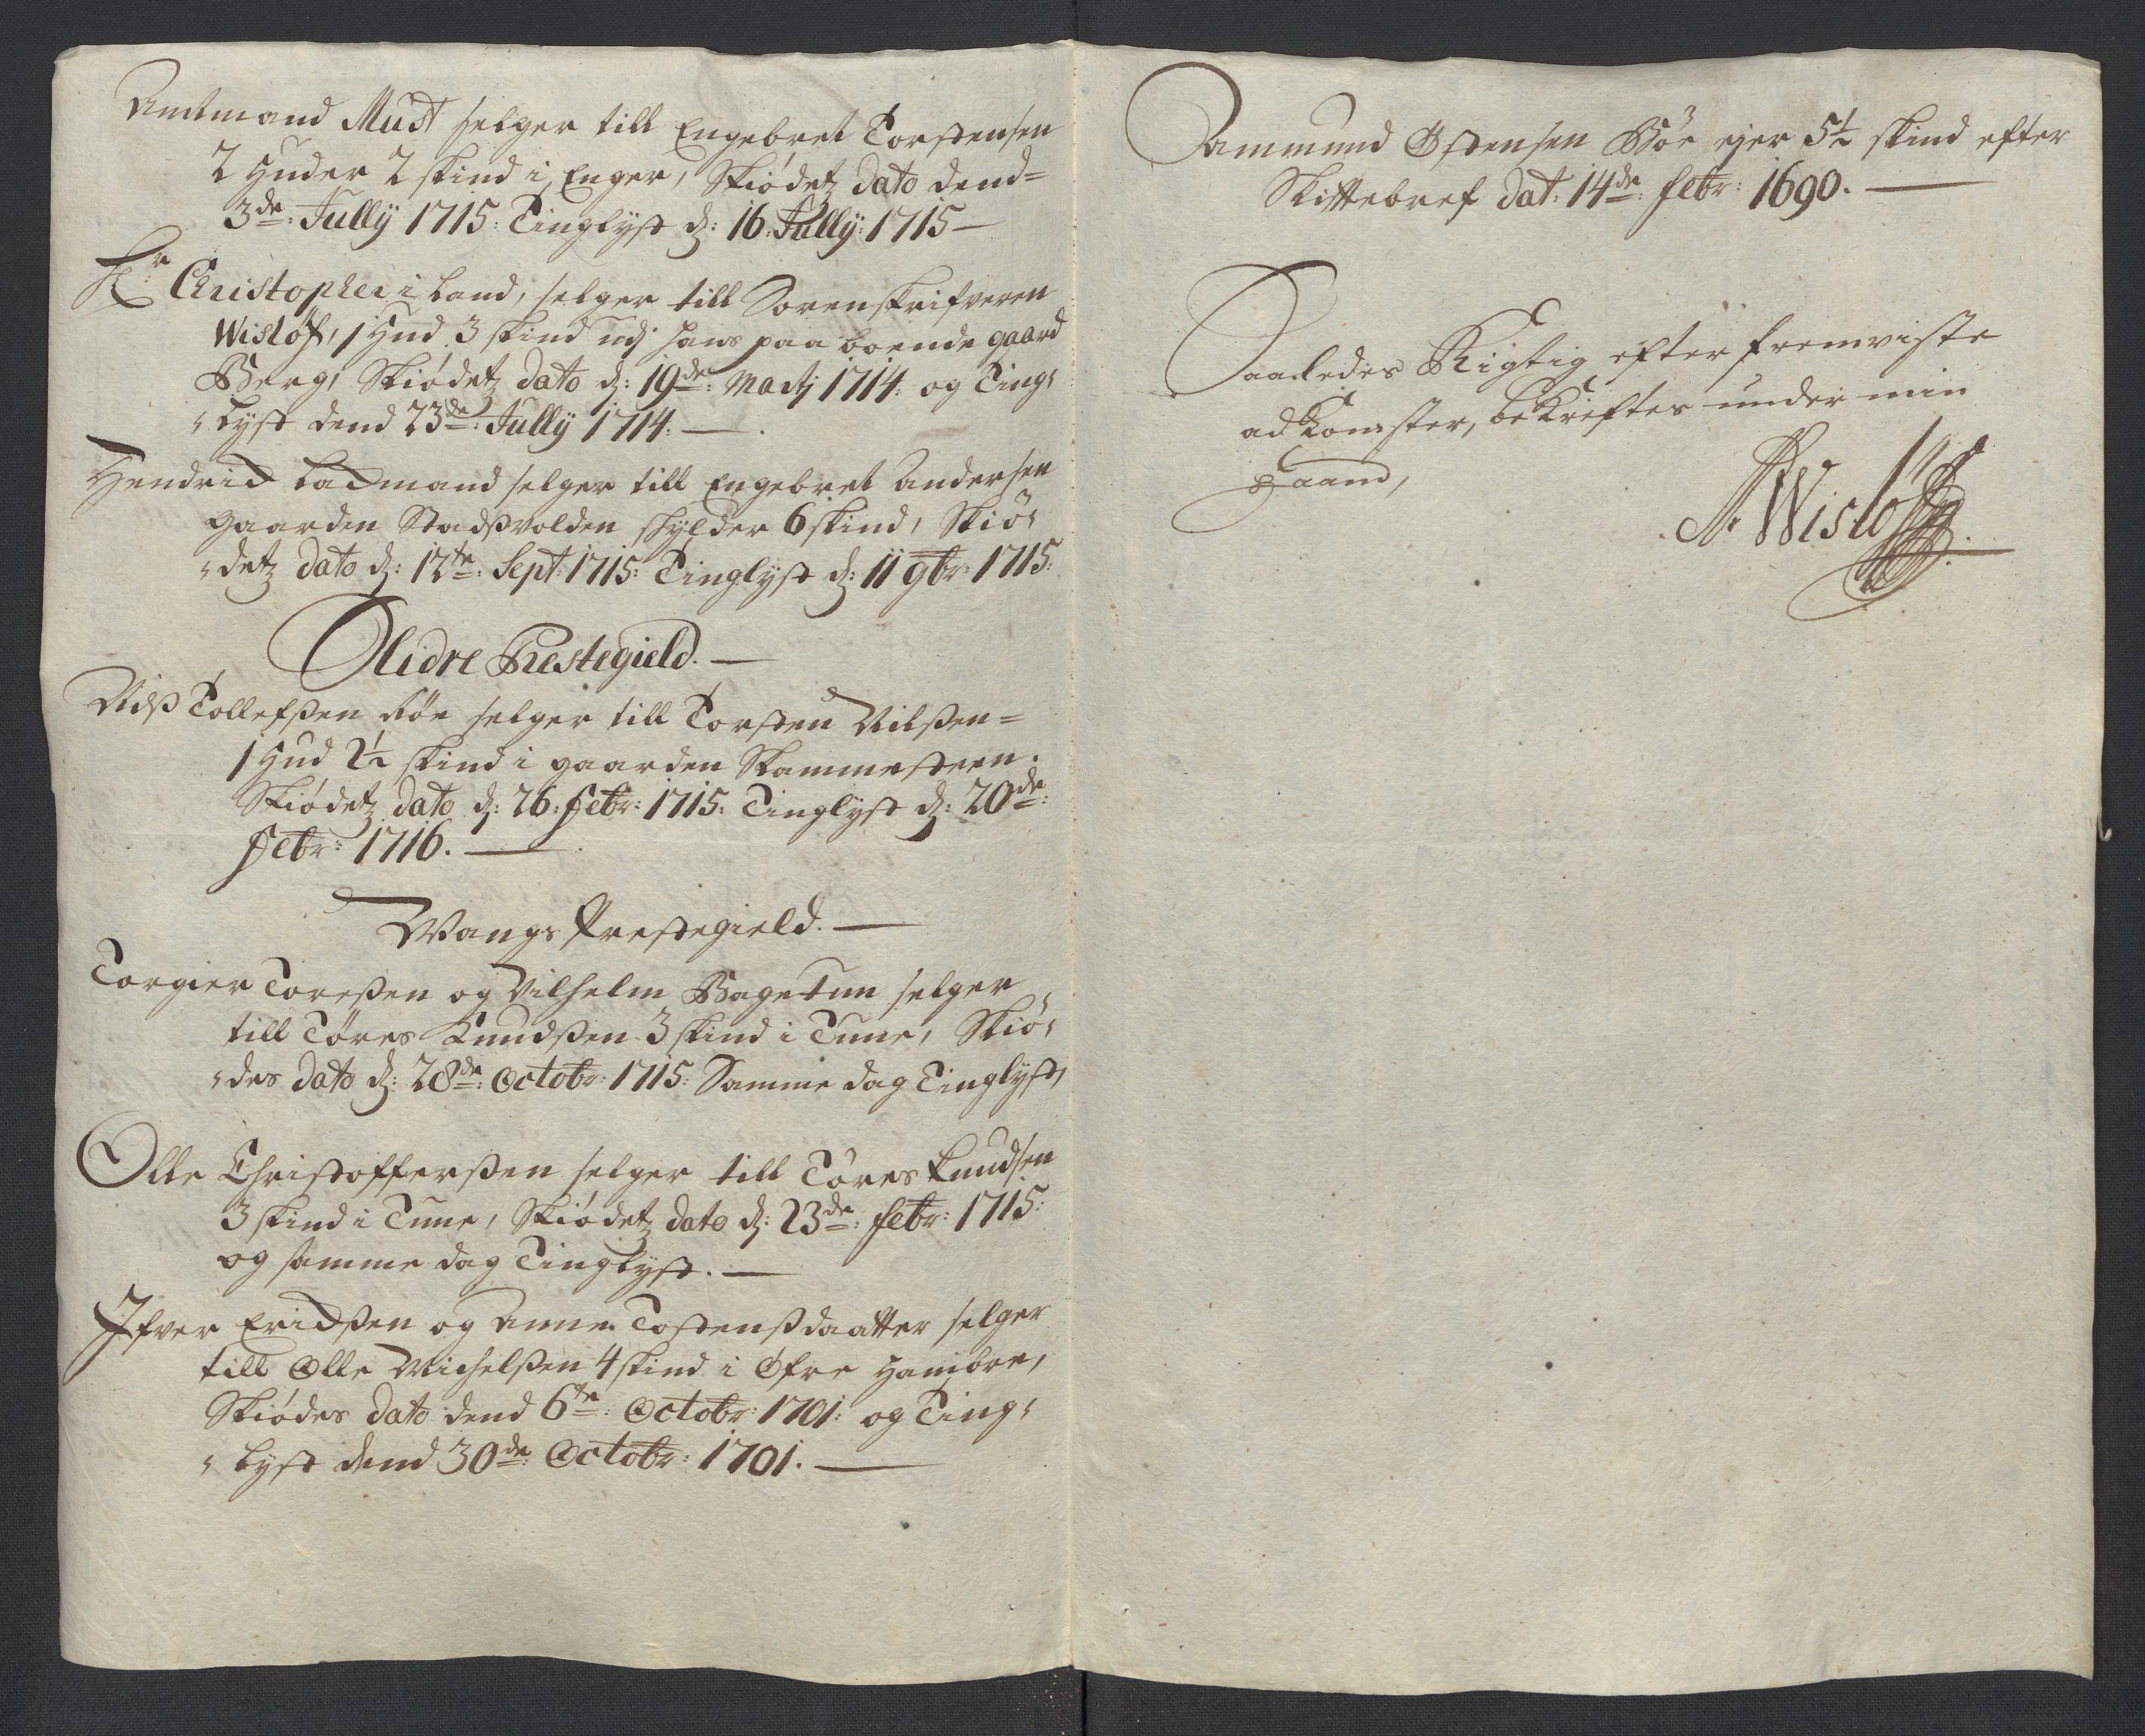 Amtmand Must selger till Engebret Torstensen
2 Huder 2 skind i Enger, Skiødetz dato dend=
3de: Jullÿ 1715: Tinglyst d: 16: Jullÿ: 1715 —
Hr: Christopher i Land, selger till Sorenskrifveren
Wisløf, 1 Hud 3 skind udj hans paaboende gaard
Berg, Skiødetz dato d: 19de: Martj 1714: og Ting-
-lyst dend 23de: Jullÿ 1714: — .
Hendrick Ladmand selger till Engebret Andersen
gaarden Stadsvolden skylder 6 skind, Skiø-
-detz dato d: 12te: Sept: 1715: Tinglyst d: 11 9br: 1715:
Slidre Prestegield. —
Nilß Tollefßen Røe selger till Torsten Nilßen=
1 Hud 2½ skind i gaarden Skammesteen.
Skiødetz dato d: 26: Febr: 1715: Tinglyst d: 20de:
Febr: 1716. —
Wangs Prestegield. —
Torgier Toreßen og Vilhelm Bagetun selger
till Tøres Knudßen 3 skind i Tune, Skiø-
-des dato d: 28de: Octobr: 1715: Samme dag Tinglyst,
Olle Christofferßen selger till Tøres Knudsen
3 skind i Tune, Skiødetz dato d: 23de: Febr: 1715:
og samme dag Tinglyst. —
Ifver Erichßen og Anne Tostenßdaatter selger
till Olle Michelßen 4 skind i Øfre
Skiødes dato dend 6te: Octobr: 1701: og Ting-
-lyst dend 30de: Octobr: 1701. —
Aammund Østensen Bøe ejer 5½ skind efter
Skittebref dat: 14de: Febr: 1690. —
Saaledes Rigtig efter fremviste
adkomster, bekreftes under min
Haand,
A: Wisløff